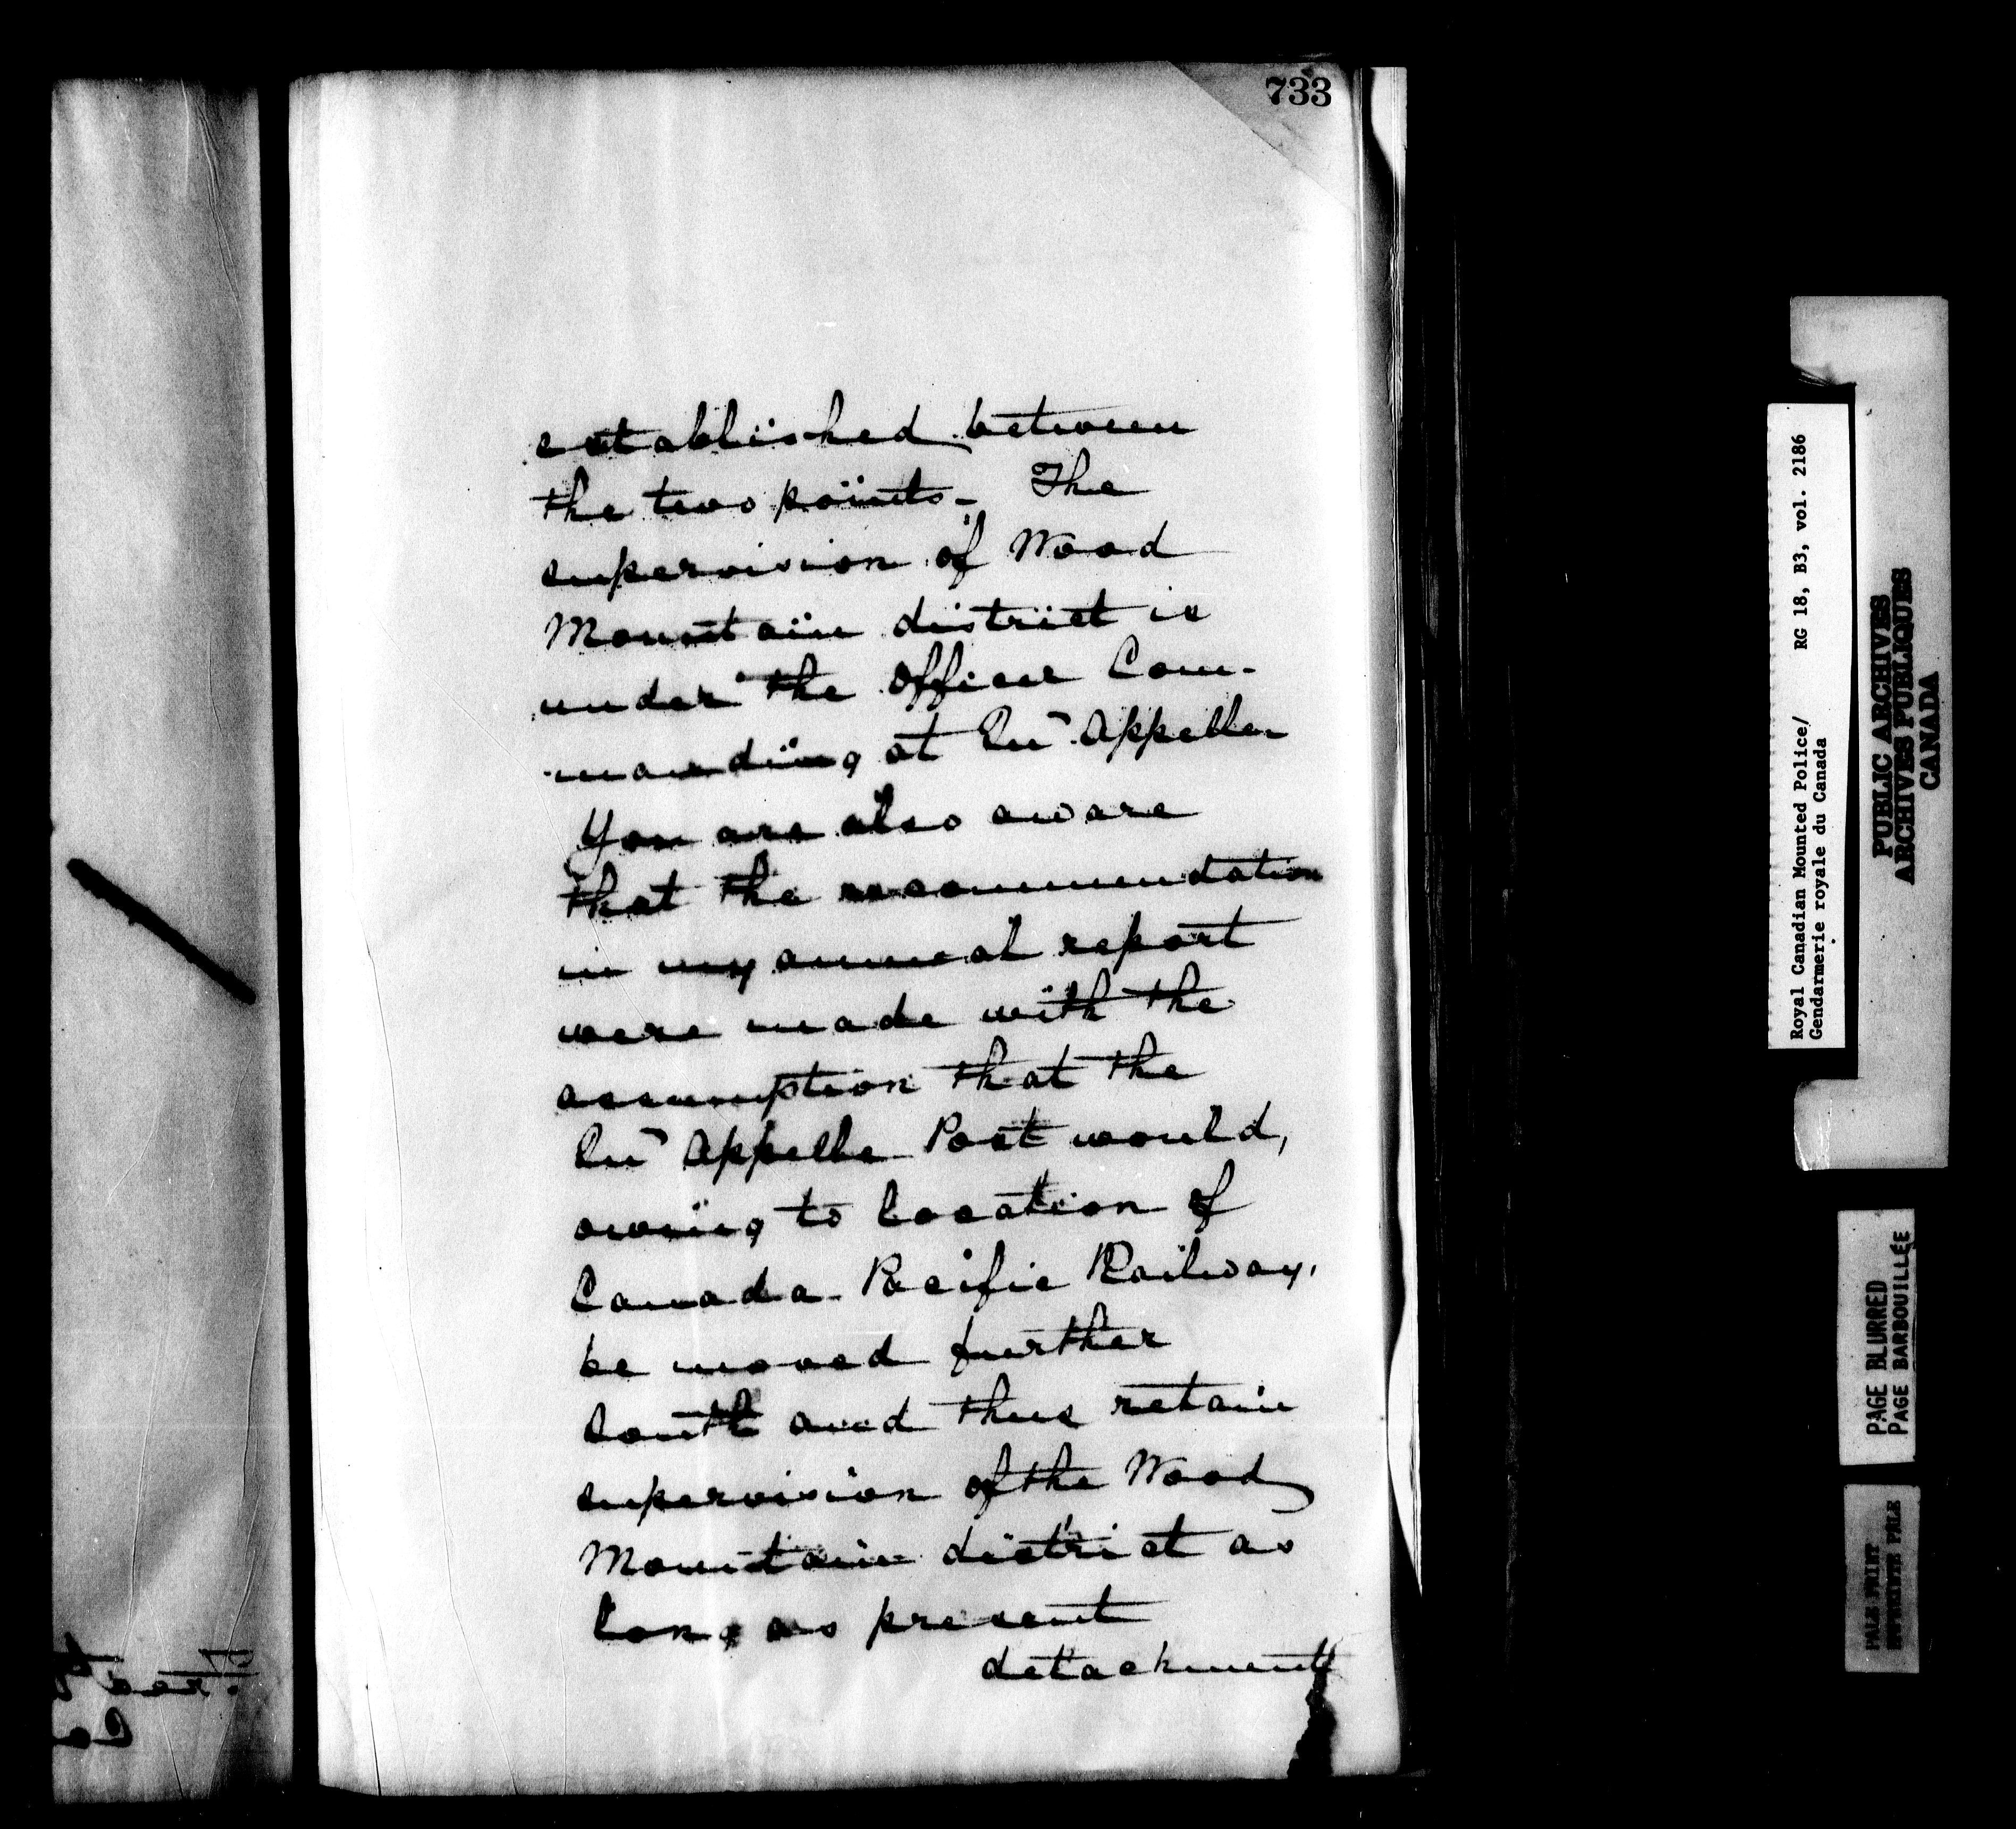 733
established between
the two points - The
supervision of Wood
Mountain district is
under the Officer Com-
-manding at Qu'Appelle
You are also aware
that the recommendation
in my annual report
were made with the
assumption that the
Qu'Appelle Post would,
owing to location of
Canada Pacific Railway,
be moved further
South and thus retain
supervision of the Wood
Mountain district as
long as present
detachment
Royal Canadian Mounted Police/ RG 18, B3, vol. 2186
Gendarmerie royale du Canada
PUBLIC ARCHIVES
ARCHIVES PUBLIQUES
CANADA
PAGE BLURRED
PAGE BARBOUILLÉE
PALE PRINT